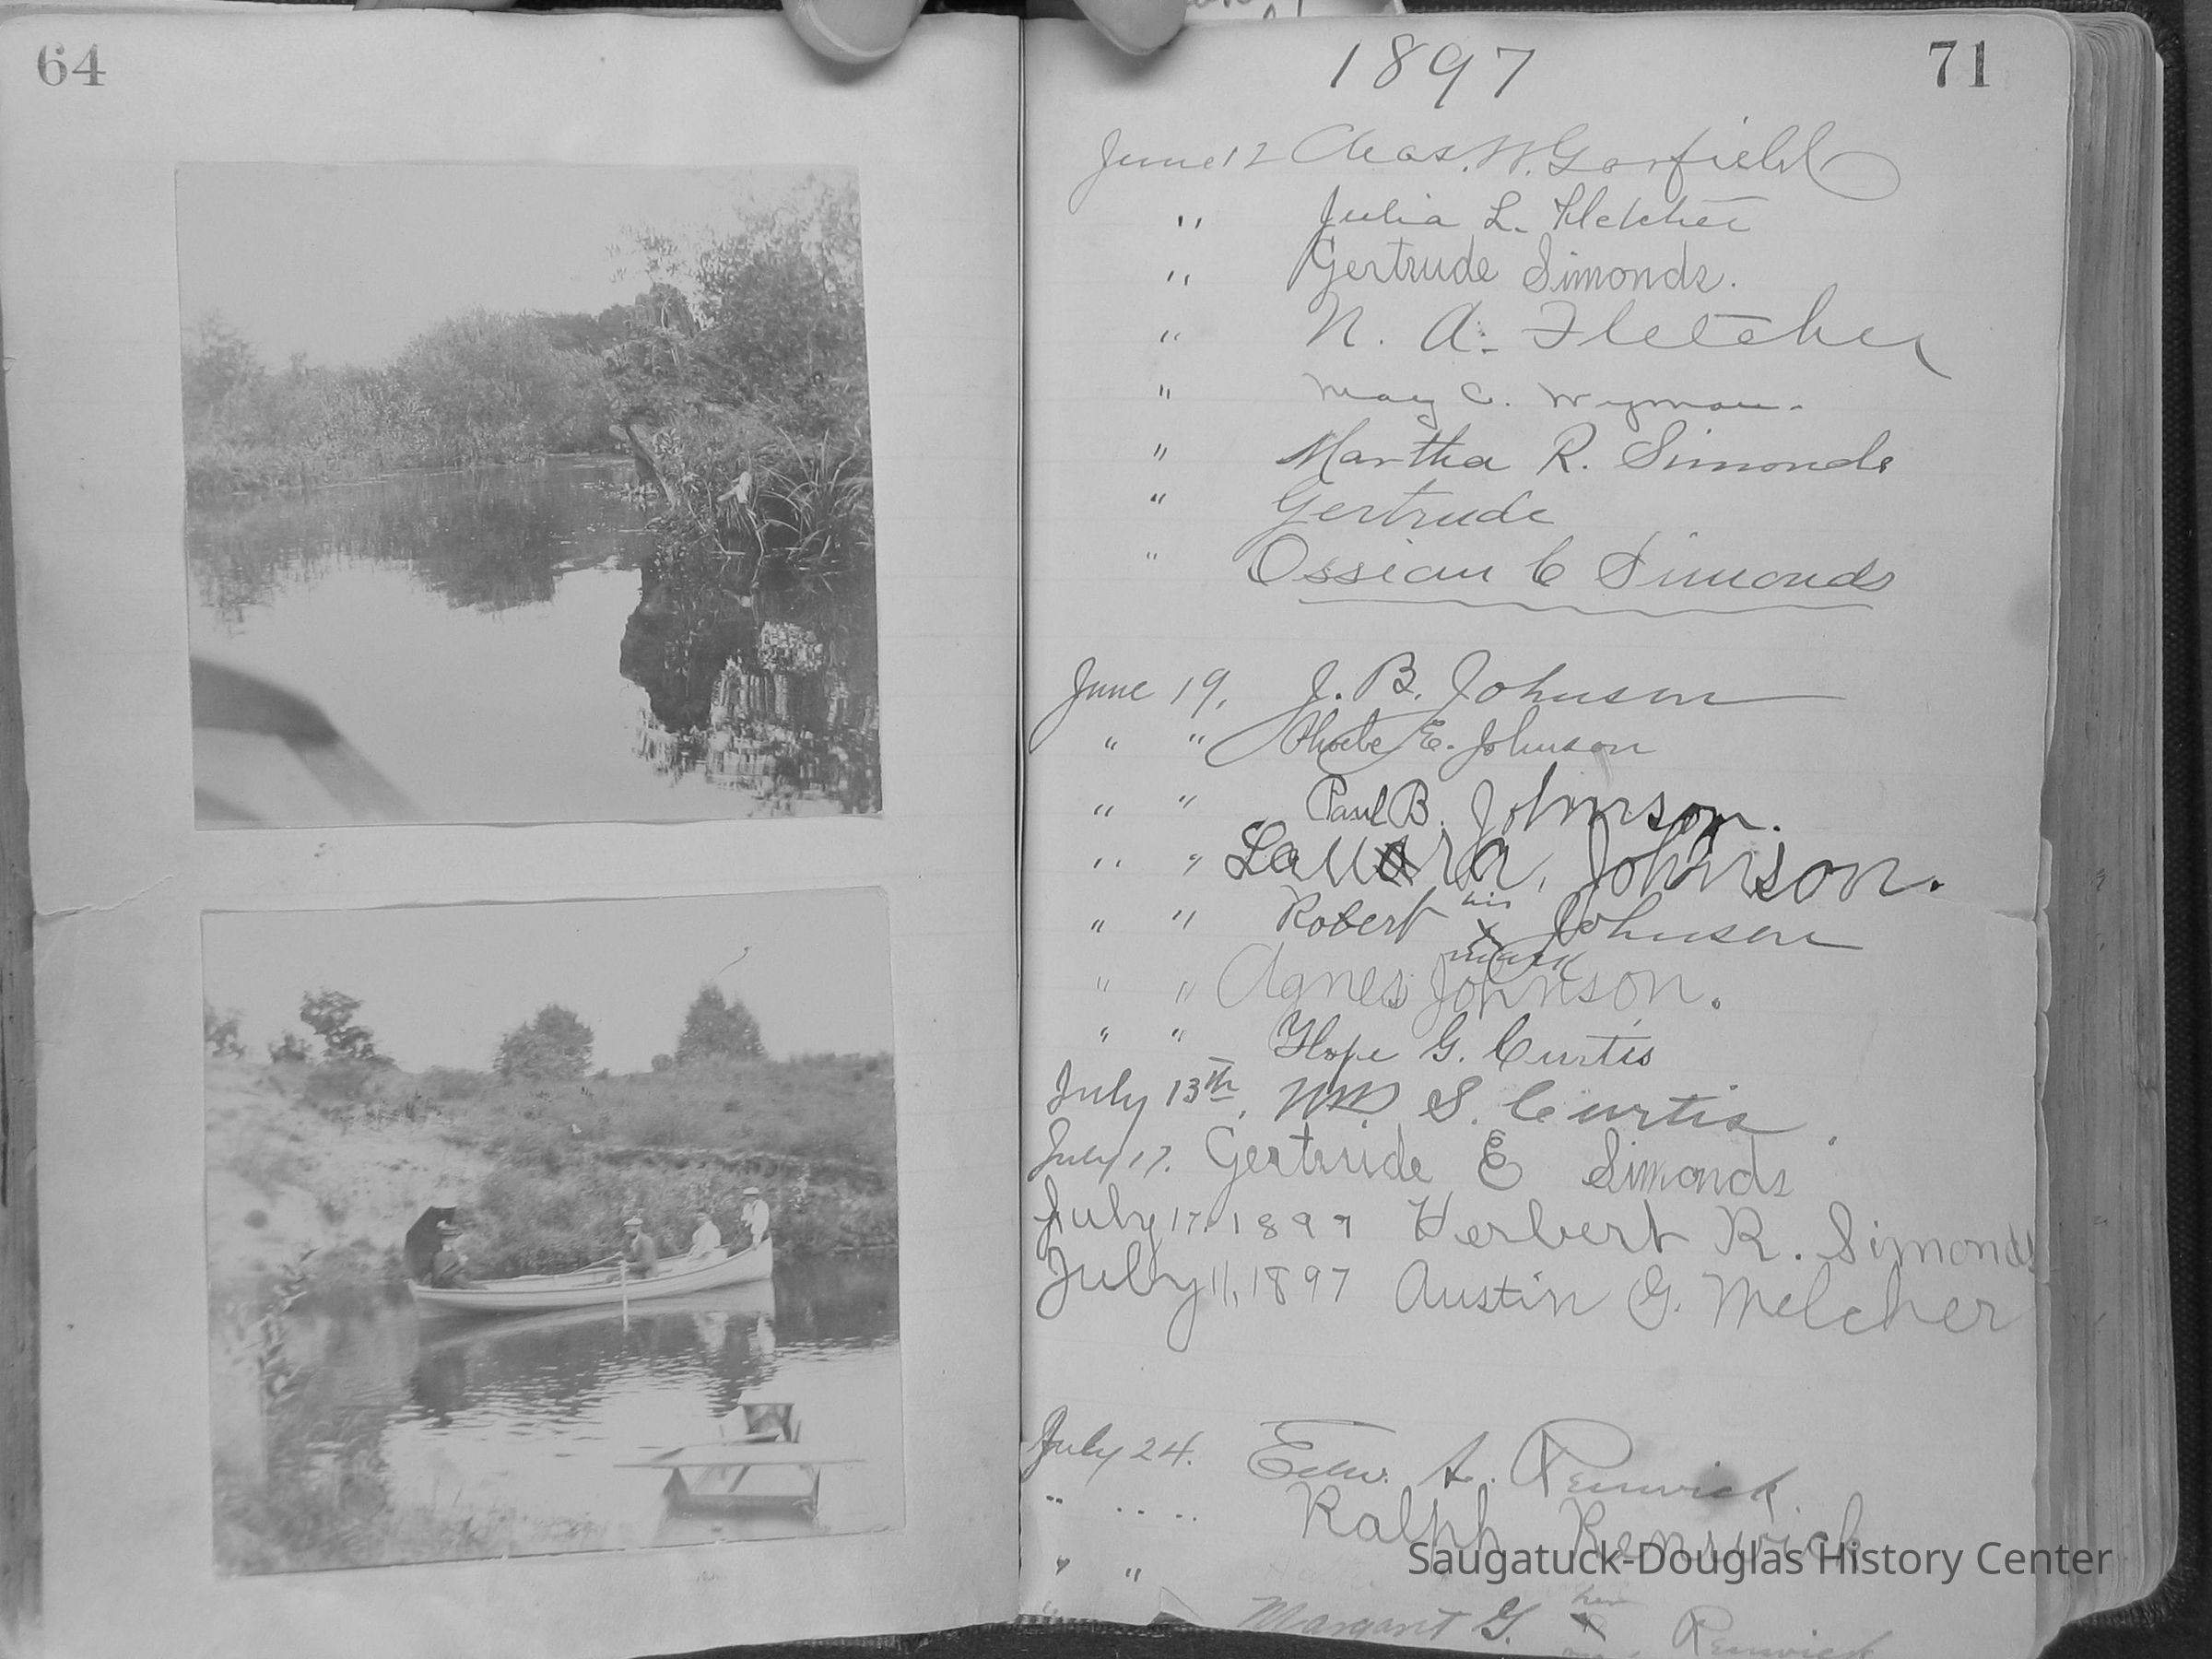 64
1897
71
June 12 Chas. W. Garfield
" Julia L. Fletcher
" Gertrude Simonds.
" N. A. Fletcher
" Mary C. Wyman.
" Martha R. Simonds
" Gertrude
" Ossian C Simonds
June 19, J. B. Johnson
" " Phoebe E. Johnson
" " Paul B. Johnson.
" " Laura, Johnson.
" " Robert his x mark Johnson
" " Agnes Johnson.
" " Hope G. Curtis
July 13th, Wm S. Curtis.
July 17. Gertrude E Simonds
July 17, 1897 Herbert R. Simonds
July 11, 1897 Austin G. Melcher
July 24. Edw. A. Renwick.
" " Ralph Renwick
" "
" Margaret G. her x Renwick
Saugatuck-Douglas History Center